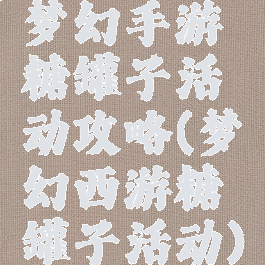 梦幻手游
糖罐子活
动攻略(梦
幻西游糖
罐子活动)